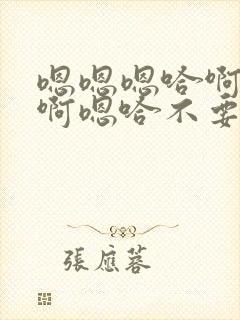 嗯嗯嗯哈啊
啊嗯哈不要
張應蓉